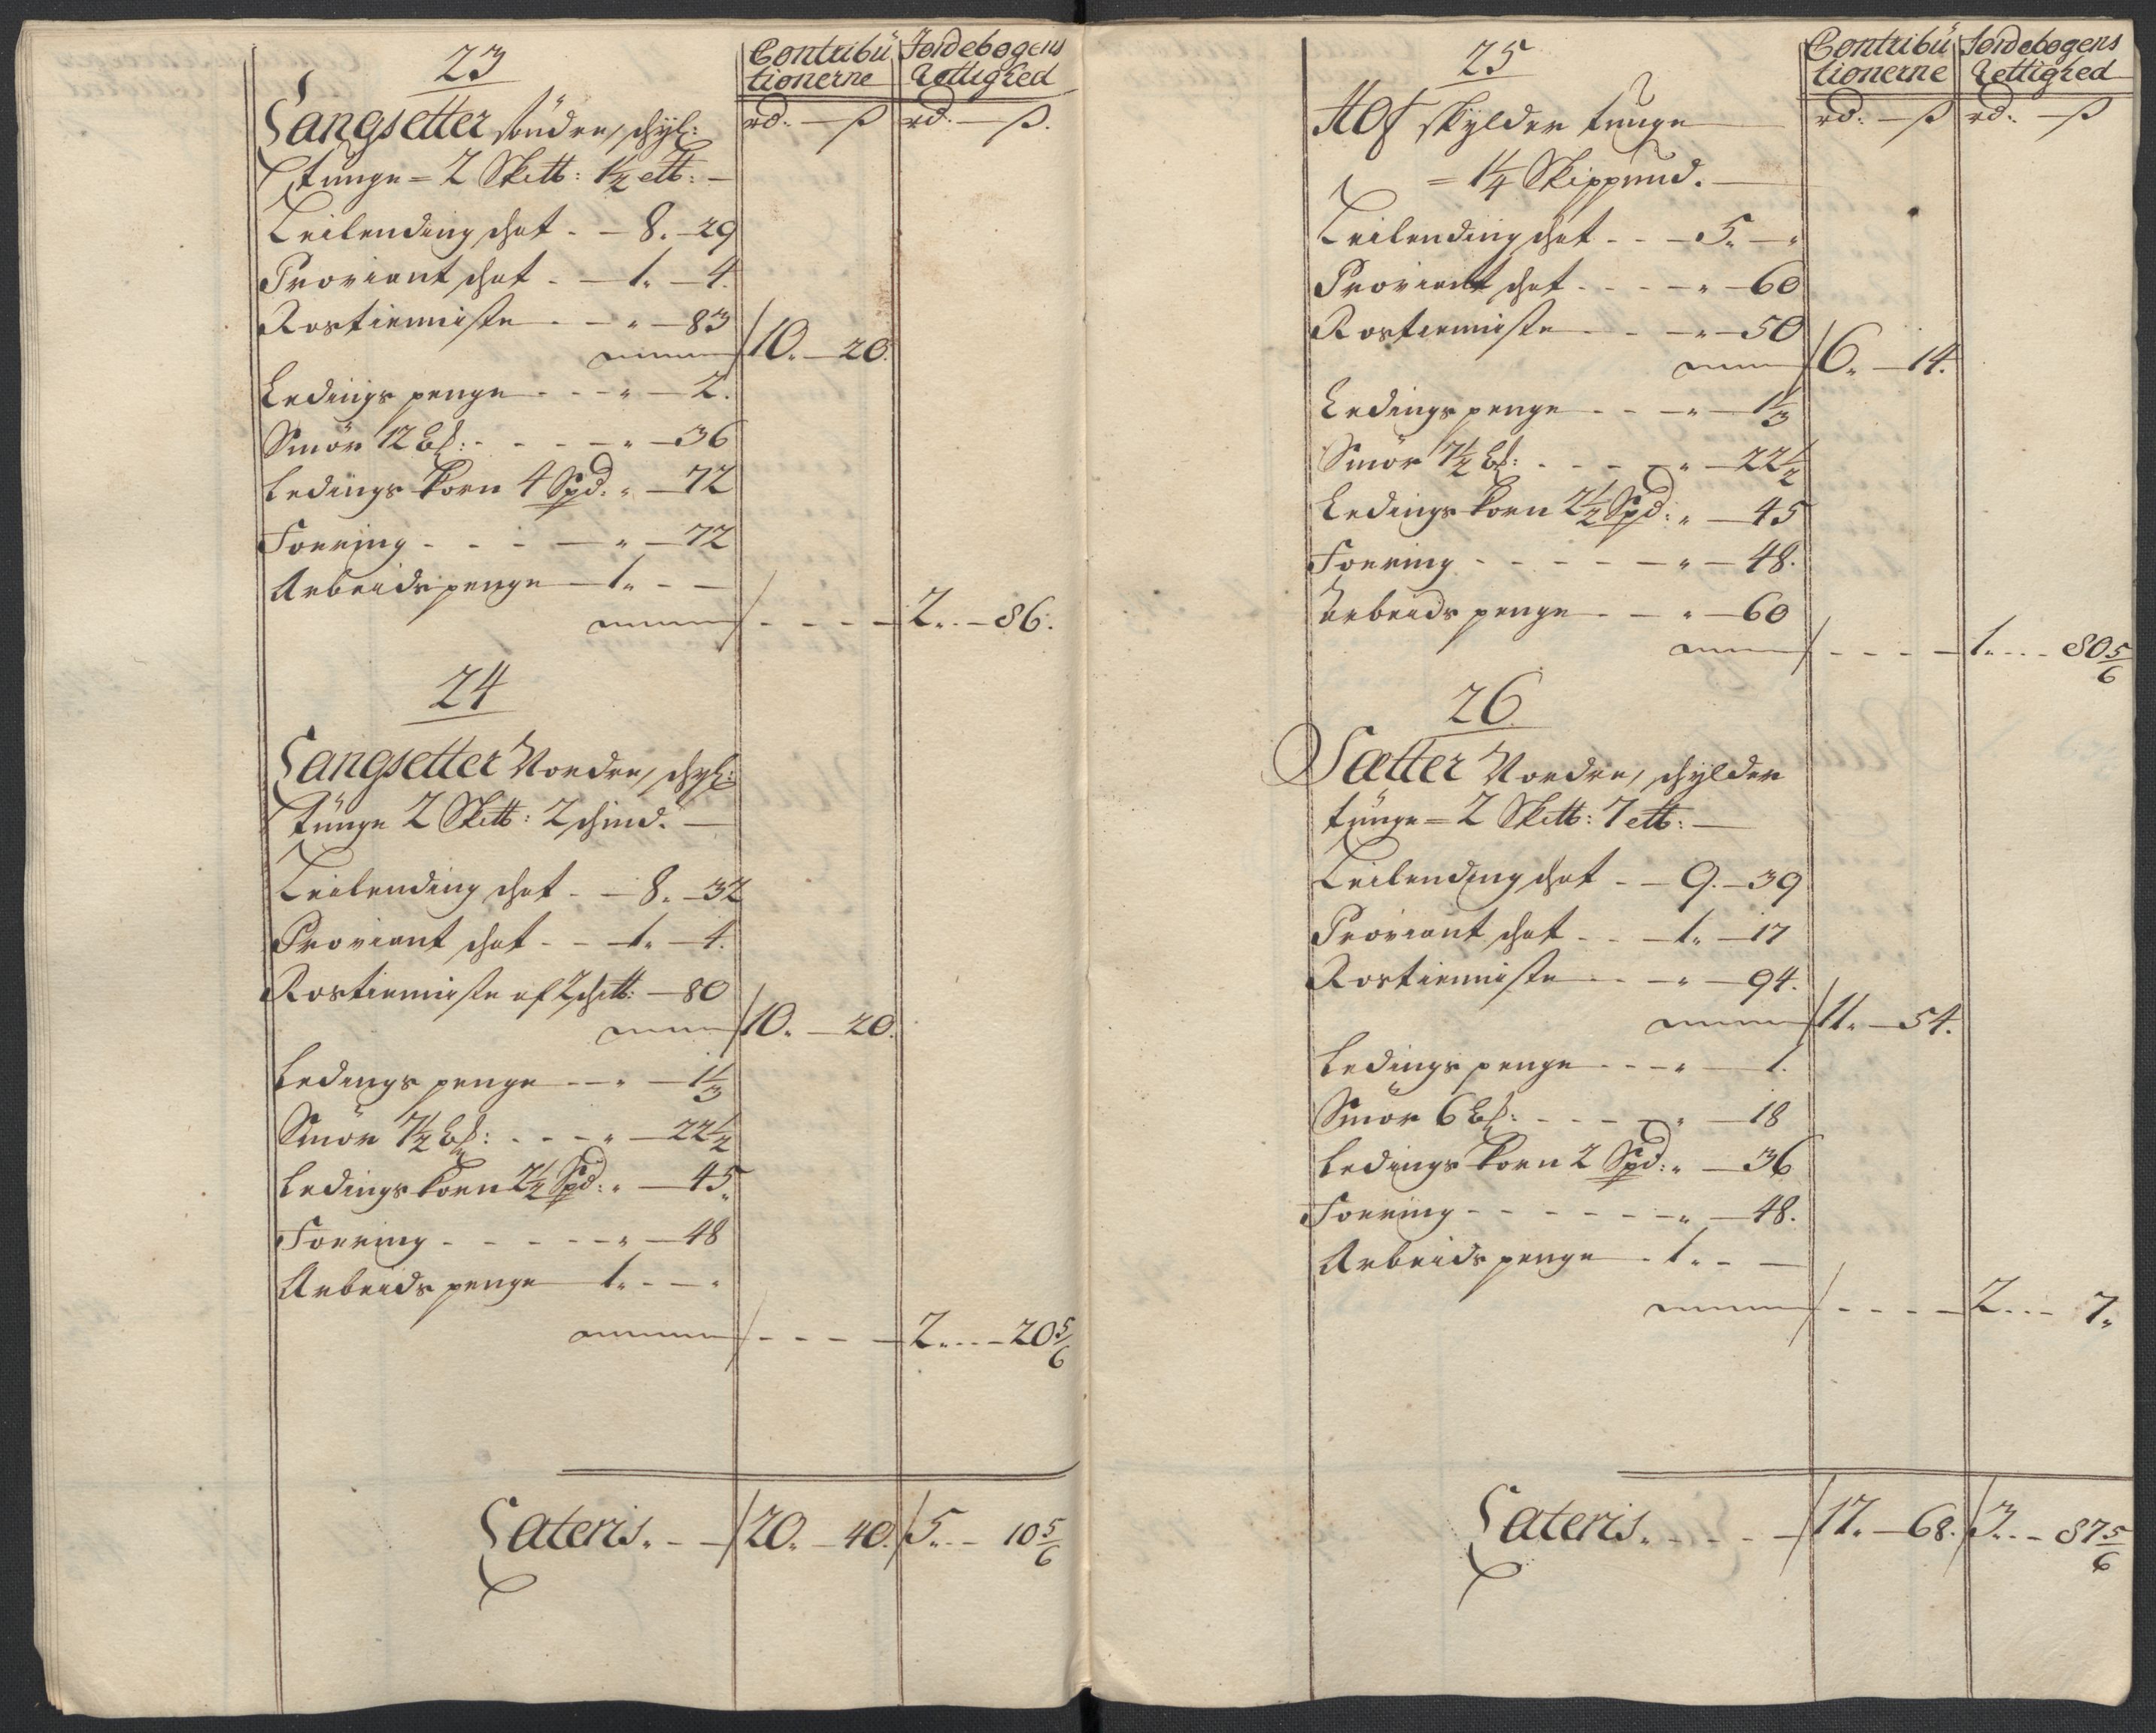 23
Contribu
tionerne
Jordebogens
Rettighed
rd. — ß
rd. — ß.
Langsetter söndre, schyl:
tunge = 2 Sk℔: 1½ ℔: —
Leilending schat - - 8. - 29
Proviant schat - — 1. - 4.
Rostienniste - - „ - 83
10. — 20.
Ledings penge - - - „ — 2.
Smör 12 B℔: - - - - „ — 36
Ledings Korn 4 Spd. „ — 72
Foering - - - — „ — 72
Arbeids penge — 1. - —
2. - - 86.
24
Langsetter Nordre, schyl:
tunge 2 Sk℔: 2 schind. —
Leilending schat - - 8. - 32
Proviant schat - - 1. - 4.
Rostienniste af 2 sch℔: — 80
10. — 20.
Ledings penge - - „ — 1⅓
Smör 7½ B℔: - - - „ — 22½
Ledings Korn 2½ Spd: „ — 45.
Foering - - - - - „ — 48
Arbeids penge — 1. - — „
2. - - - 20⅚
Lateris. - — 20. — 40. 5. - - 10⅚
25
Contribu
tionerne
Jordebogens
Rettighed
rd. — ß
rd. — ß
Hof skylder tunge
= 1¼ Skippund. —
Leilending schat - - - 5. — „
Proviant schat - - - - „ — 60
Rostienniste - - — „ — 50
6. — 14.
Ledings penge - - - „ — 1⅓
Smör 7½ B℔: - - - - „ — 22½
Ledings Korn 2½ Spd: „ — 45
Foering - - - - - — „ — 48.
Arbeids penge - - — „ — 60
1. - - - 80⅚
26.
Sætter Nordre, schylder
tunge = 2 Sk℔: 7 ℔: —
Leilending schat - - 9. — 39
Proviant schat - - — 1. — 17
Rostienniste - - — „ — 94.
11. — 54.
Ledings penge - - - „ — 1.
Smör 6 B℔: - - - - „ — 18
Ledings Korn 2 Spd: „ — 36
Foering - - - - - - „ — 48.
Arbeids penge - 1. - —
2. - - - 7.
Lateris. - - - — 17. — 68. 3. - - 87⅚